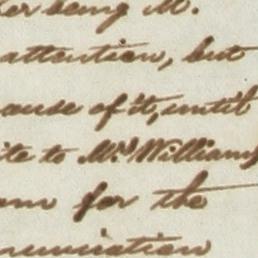 being M.
attention, but
ause of it, until
ite to Mrs Williams
for the
unication